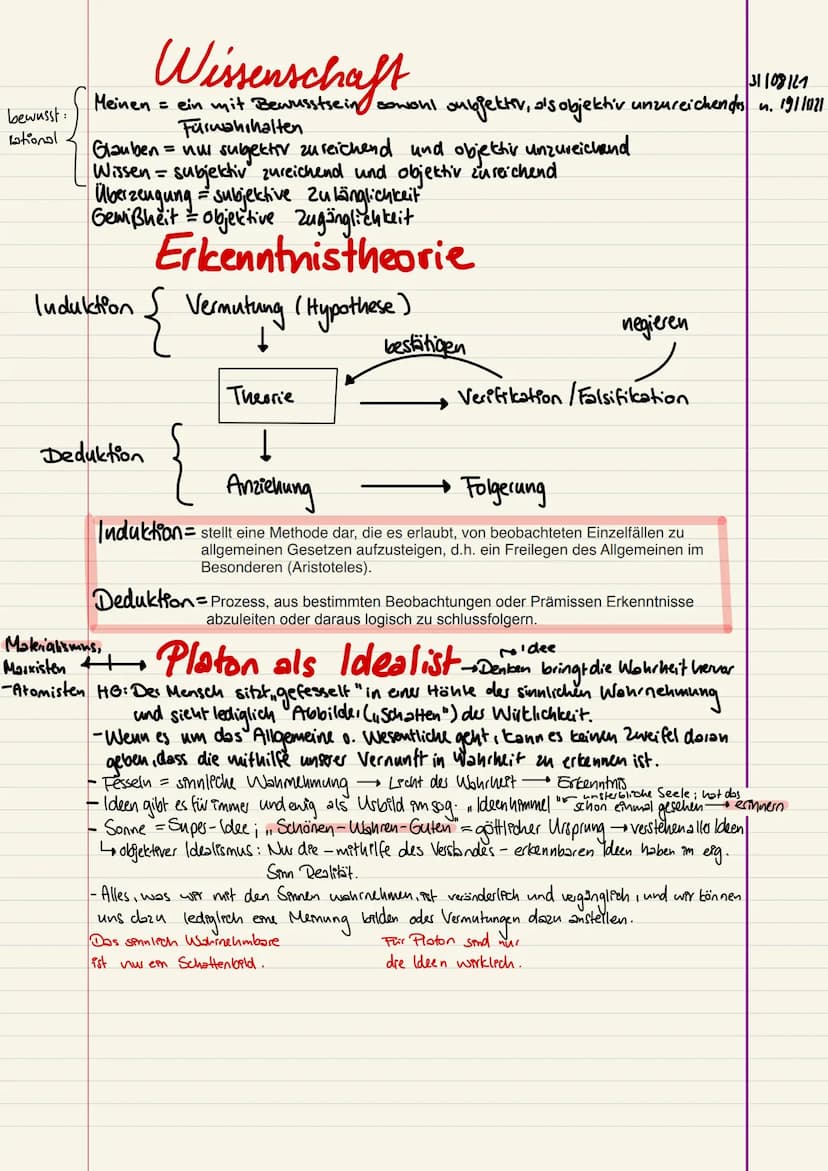 Wissenschaft
31/08/21
u. 19/1/021
bewusst:
rational
Meinen = ein mit Bewusstsein sowohl subjektiv, als objektiv unzureichendes
Fürwahrhalten
Glauben = nur subjektiv zureichend und objektiv unzureichend
Wissen = subjektiv zureichend und objektiv zureichend
Überzeugung = subjektive Zulänglichkeit
Gewißheit = objektive Zugänglichkeit
Erkenntnistheorie
Induktion { Vermutung (Hypothese)
negieren
bestätigen
Theorie → Verifikation / Falsifikation
Deduktion {
Anziehung → Folgerung
Induktion = stellt eine Methode dar, die es erlaubt, von beobachteten Einzelfällen zu
allgemeinen Gesetzen aufzusteigen, d.h. ein Freilegen des Allgemeinen im
Besonderen (Aristoteles).
Deduktion = Prozess, aus bestimmten Beobachtungen oder Prämissen Erkenntnisse
abzuleiten oder daraus logisch zu schlussfolgern.
Materialismus,
Marxisten
-Atomisten
Platon als Idealist → Denken bringt die Wahrheit hervor
idee
HG: Der Mensch sitzt „gefesselt" in einer Höhle der sinnlichen Wahrnehmung
und sieht lediglich "Abbilder („Schatten") der Wirklichkeit.
- Wenn es um das Allgemeine o. Wesentliche geht, kann es keinen Zweifel daran
geben, dass die mithilfe unserer Vernunft in Wahrheit zu erkennen ist.
- Fesseln = sinnliche Wahrnehmung → Licht der Wahrheit → Erkenntnis
unsterbliche Seele; hat das
- Ideen gibt es für immer und ewig als Urbild im sog. „Ideenhimmel" schon einmal gesehen → erinnern
- Sonne = Super-Idee; „Schönen-Wahren-Guten" = göttlicher Ursprung → verstehen aller Ideen
↳ objektiver Idealismus: Nur die - mithilfe des Verstandes - erkennbaren Ideen haben im eig.
Sinn Realität.
- Alles, was wir mit den Sinnen wahrnehmen, ist veränderlich und vergänglich, und wir können
uns dazu lediglich eine Meinung bilden oder Vermutungen dazu anstellen.
Das sinnlich Wahrnehmbare
ist nur ein Schattenbild.
Für Platon sind nur
die Ideen wirklich.